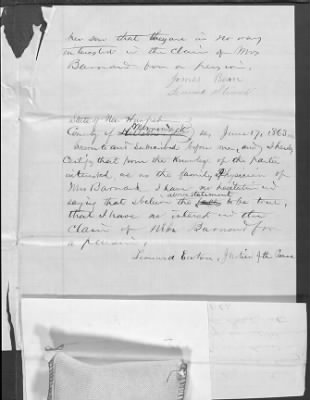 her son that they are in no way
interested in the claim of Mrs
Barnard for a pension.
James Bean
State of New Hampsh
County of Merrimack ss, June 17, 1863
Sworn to and subscribed before me, and I hereby
Certify that from the knowledge of the parties
interested, as the family Physician of
Mrs Barnard I have no hesitation in
saying that I believe the above statement to be true,
that I have no interest in the
Claim of Mrs Barnard for
a pension,
Leonard Eaton, Justice of the Peace